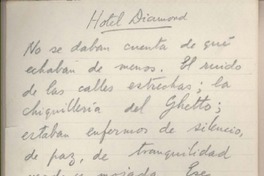 Hotel Diamond
No se daban cuenta de qué
echaban de menos. El ruido
de las calles estrechas; la
chiquillería del Ghetto;
estaban enfermos de silencio,
de paz, de tranquilidad
mojada. Ese